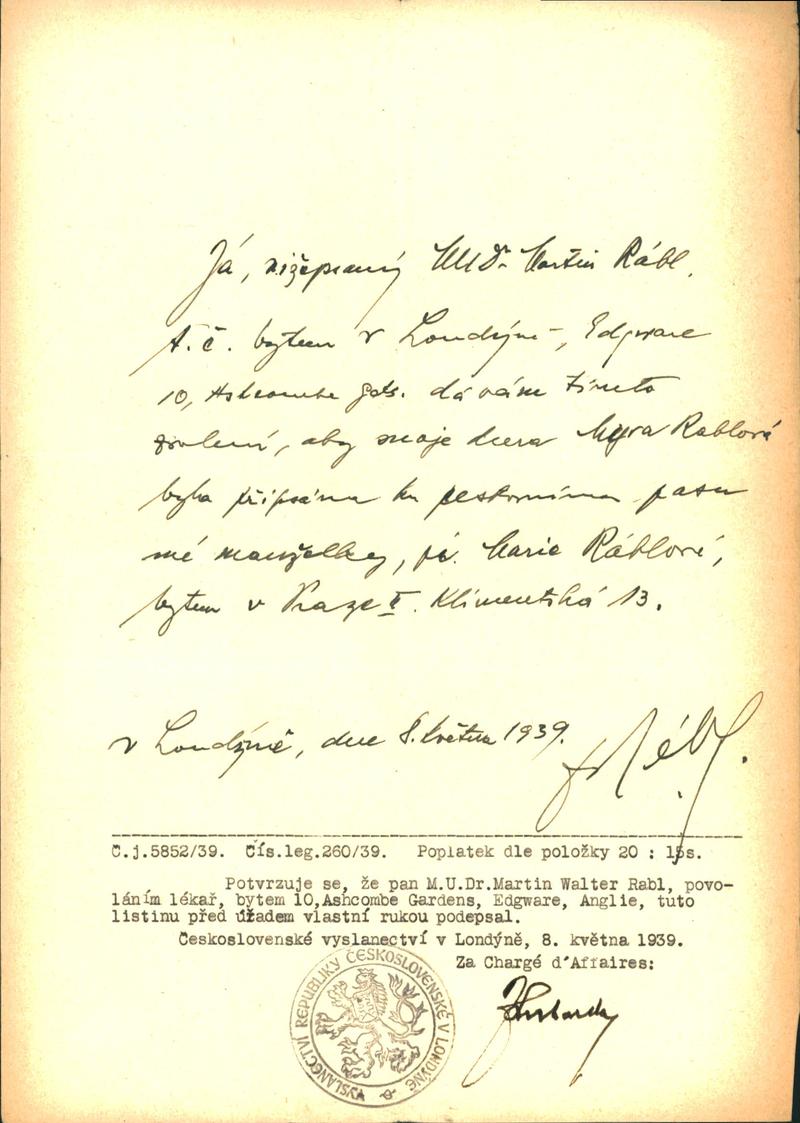 Já, nížepsaný MUDr. Martin Rábl,
t.č. bytem v Londýně, Edgware
10, Ashcombe gds. dávám tímto
svolení, aby moje dcera Myra Rablová
byla připsána ku cestovnímu pasu
mé manželky, pí. Marie Ráblové,
bytem v Praze II. Klimentská 13.
v Londýně, dne 8. května 1939.
Rábl.
Č.j.5852/39. Čís.leg.260/39. Poplatek dle položky 20 : 15s.
Potvrzuje se, že pan M.U.Dr.Martin Walter Rabl, povo-
láním lékař, bytem 10,Ashcombe Gardens, Edgware, Anglie, tuto
listinu před úřadem vlastní rukou podepsal.
Československé vyslanectví v Londýně, 8. května 1939.
Za Chargé d'Affaires:
VYSLANECTVÍ REPUBLIKY ČESKOSLOVENSKÉ V LONDÝNĚ